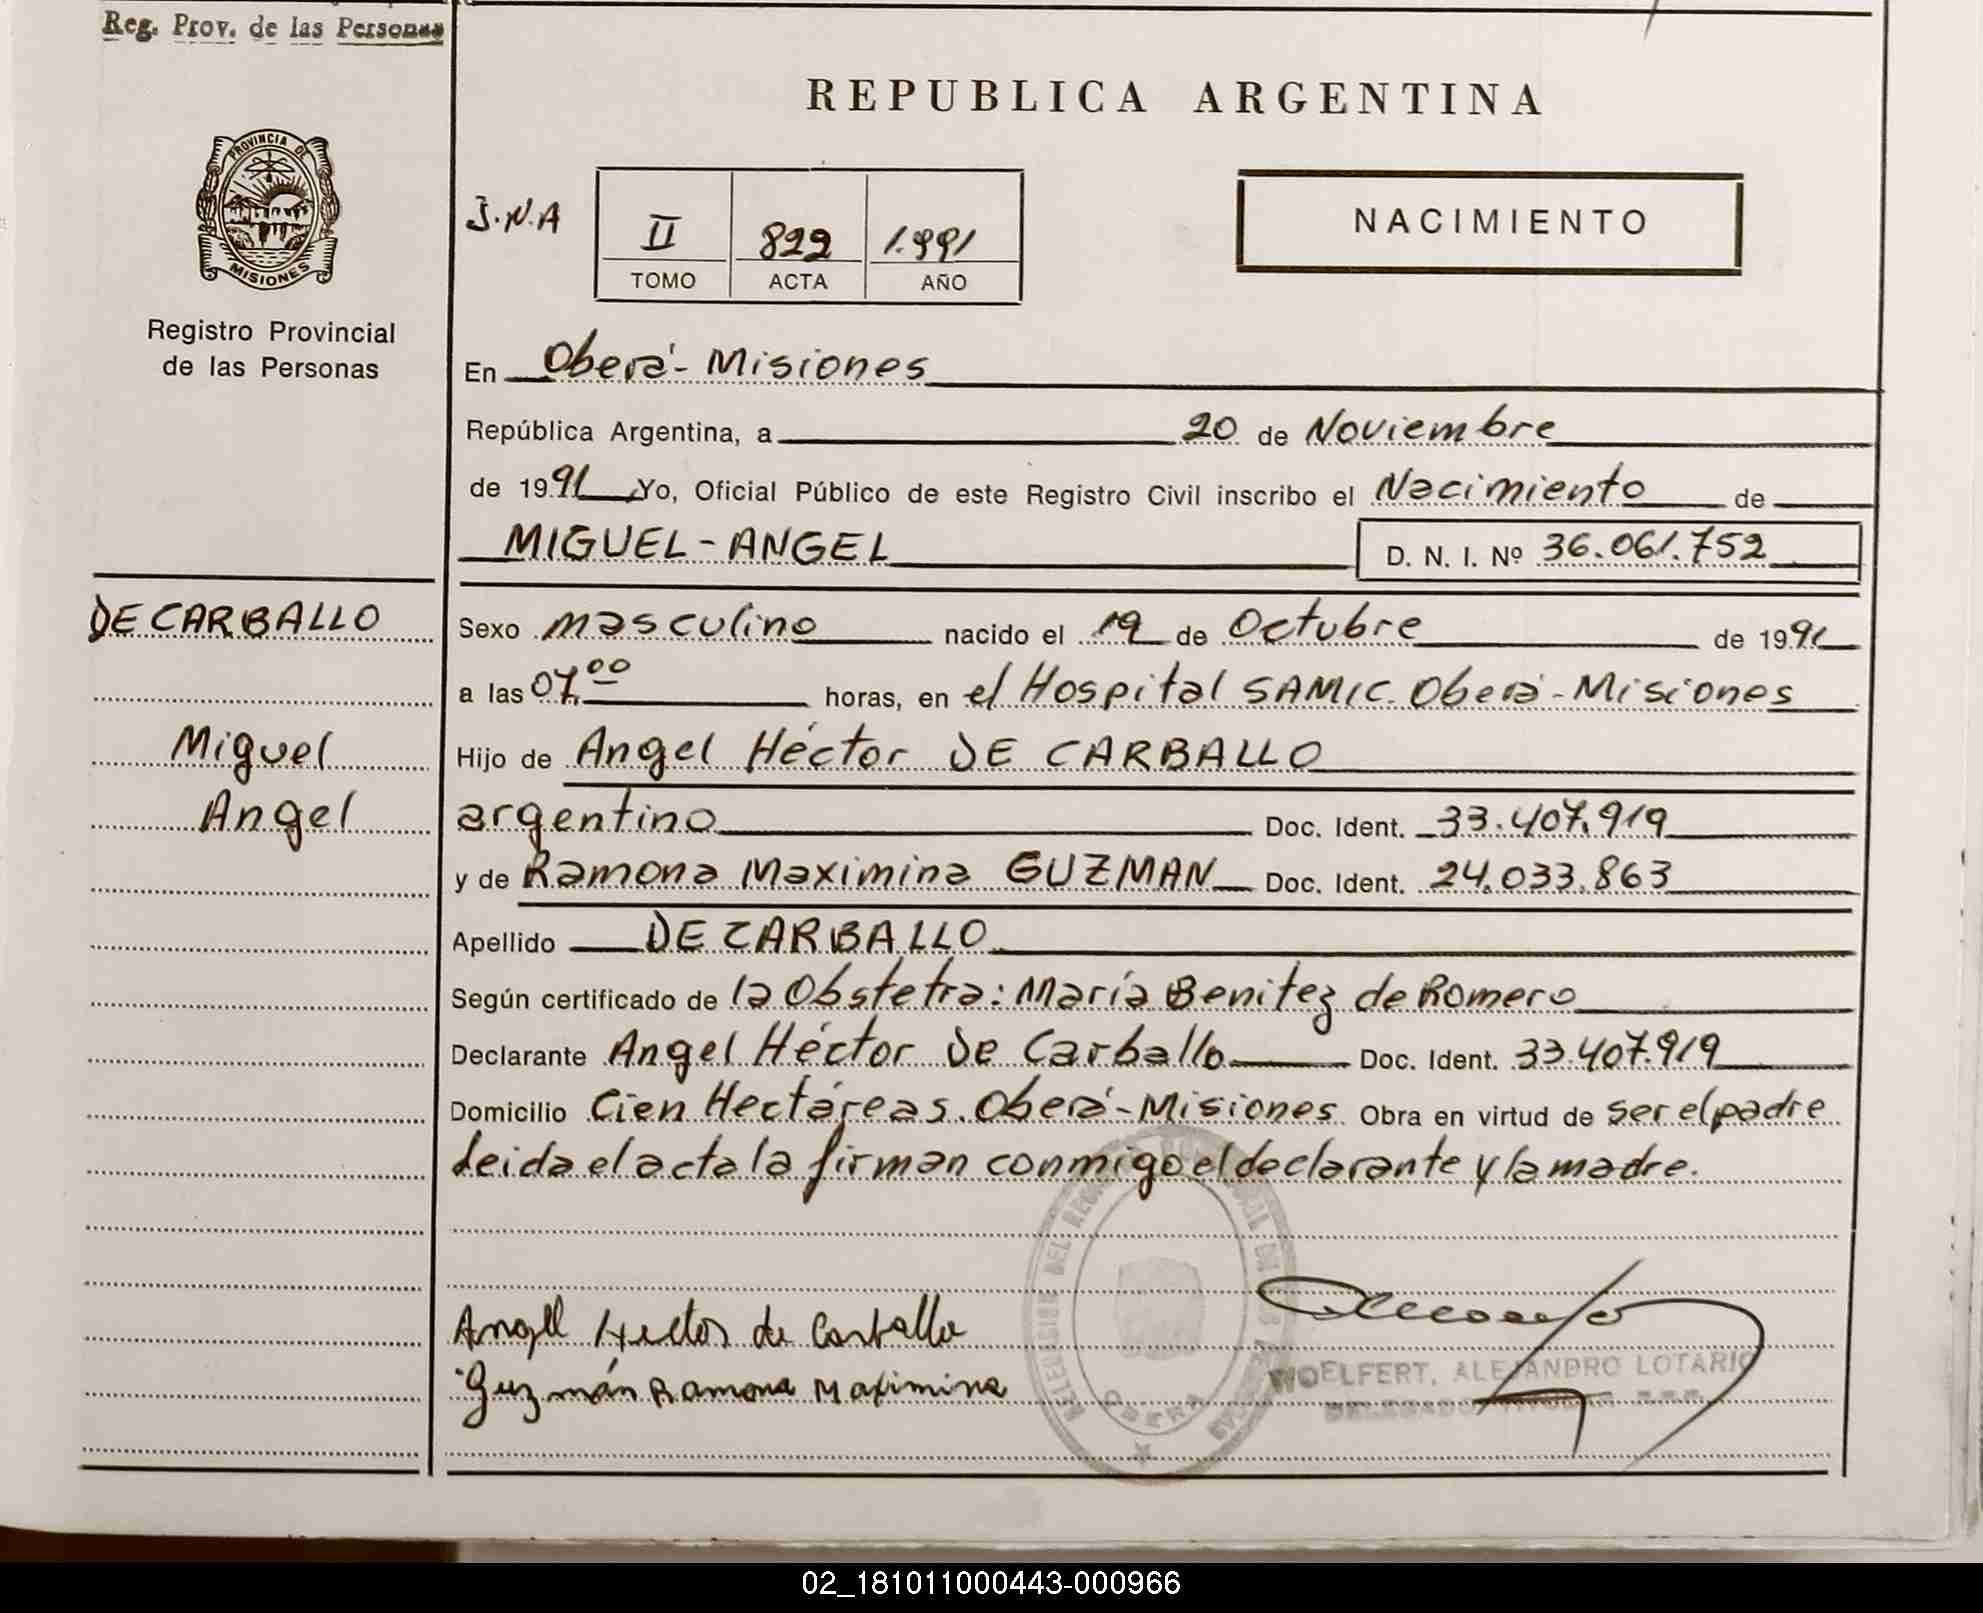 Reg. Prov. de las Personas
REPUBLICA ARGENTINA
PROVINCIA DE
MISIONES
Registro Provincial
de las Personas
J.N.A
II 822 1.991
TOMO ACTA AÑO
NACIMIENTO
En Oberá - Misiones
República Argentina, a 20 de Noviembre
de 1991 Yo, Oficial Público de este Registro Civil inscribo el Nacimiento de
MIGUEL - ANGEL D. N. I. Nº 36.061.752
DE CARBALLO
Miguel
Angel
Sexo masculino nacido el 19 de Octubre de 1991
a las 07,00 horas, en el Hospital SAMIC. Oberá - Misiones
Hijo de Angel Héctor DE CARBALLO
argentino Doc. Ident. 33.407.919
y de Ramona Maximina GUZMAN Doc. Ident. 24.033.863
Apellido DE CARBALLO
Según certificado de la Obstetra: María Benitez de Romero
Declarante Angel Héctor De Carballo Doc. Ident. 33.407.919
Domicilio Cien Hectáreas. Oberá - Misiones Obra en virtud de ser el padre
Leida el acta la firman conmigo el declarante y la madre.
Angel Hector de Carballo
Guzmán Ramona Maximina
DELEGACION DEL REGISTRO PROVINCIAL DE LAS PERSONAS
OBERA
WOELFERT, ALEJANDRO LOTARIO
DELEGADO TITULAR
02_181011000443-000966